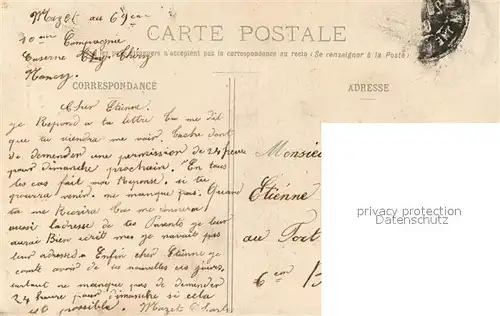 Mazet au 69eme
CARTE POSTALE
10eme Compagnie
pays étrangers n'acceptent pas la correspondance au recto (Se renseigner à la Poste)
Caserne Thiry
Nancy
CORRESPONDANCE
ADRESSE
Cher Etienne.
je Repond a ta lettre tu me dit
que tu viendra me voir. tache dont
de demender une permission de 24 heure
pour dimanche prochain. En tous
tes cas fait moi Reponse, si tu
pourra venir. ne manque pas. Quand
tu me Recrira tu me
aussi ladresse de tes Parents je leur
aurai Bien ecrit mes je navait pas
leur adresse. Enfin cher Etienne je
conte avoir de tes nouvelles ces jours,
surtout ne manque pas de demender
24 heure pour dimanche si cela
est possible. Mazet Charles
Monsieur
Etiénne
au Fort
6em
privacy protection
www.oldthing.com